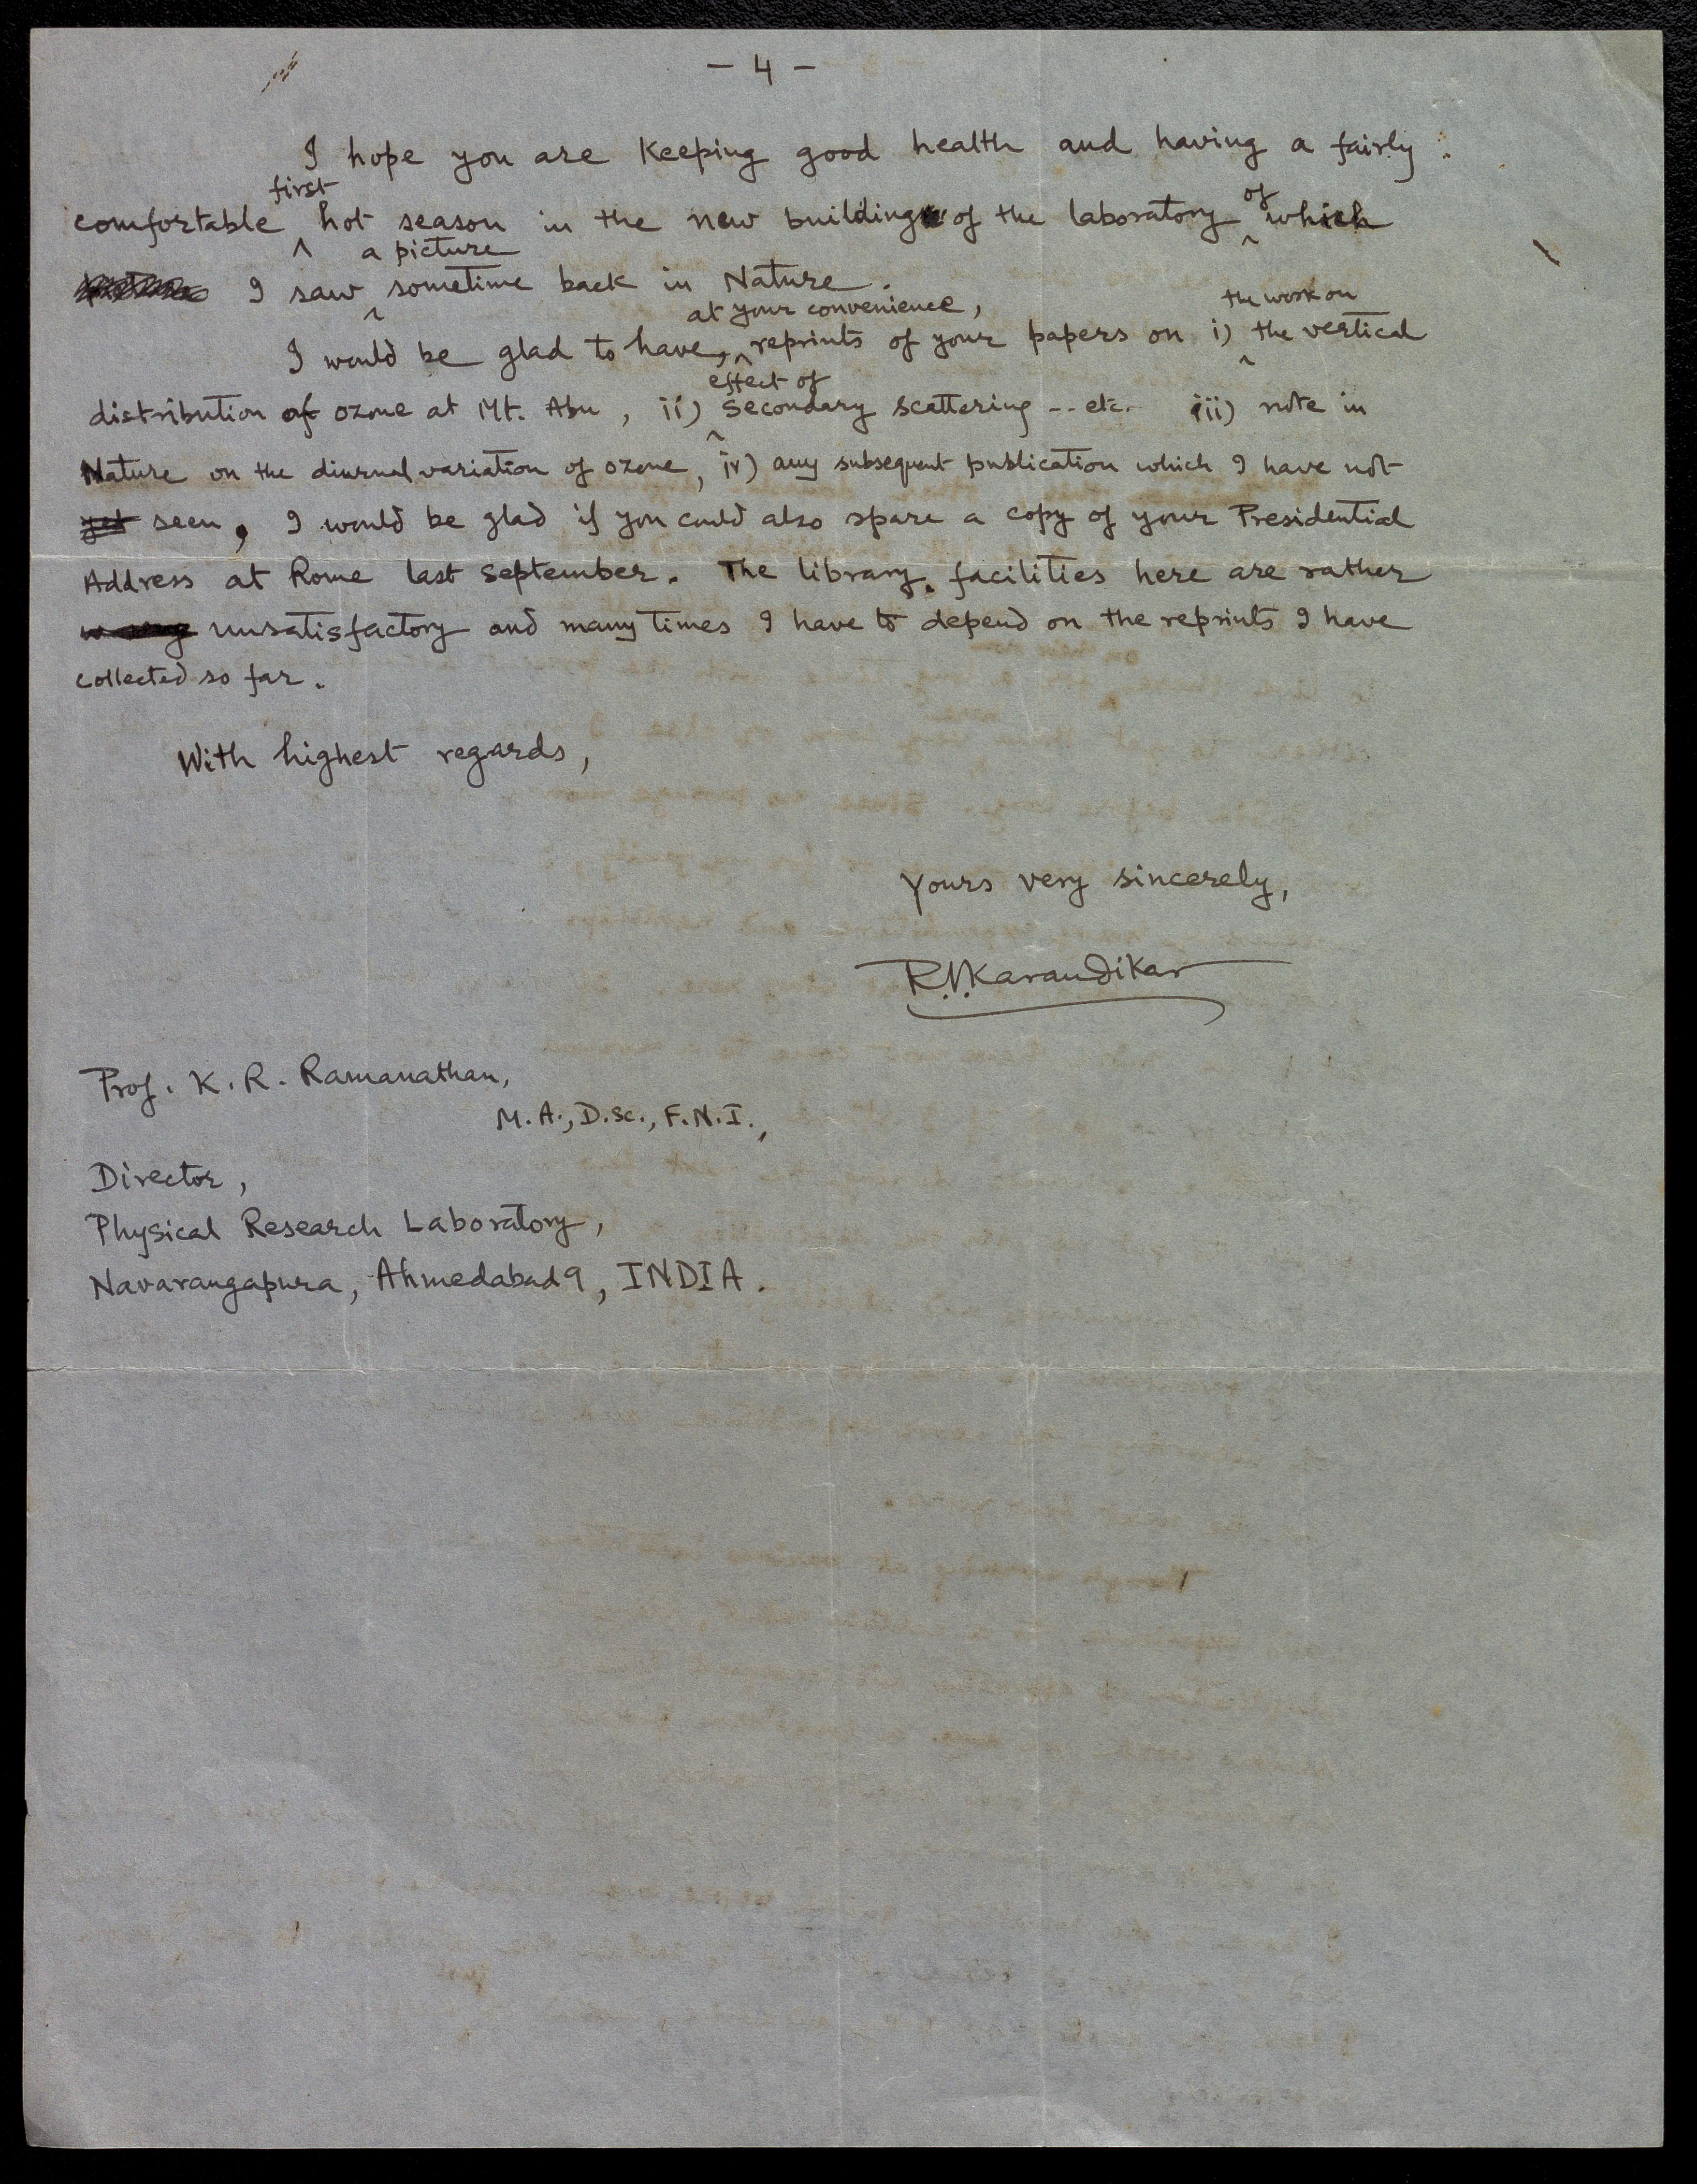 - 4 -
I hope you are keeping good health and having a fairly
comfortable first hot season in the new building of the laboratory of which
I saw a picture sometime back in Nature.
I would be glad to have, at your convenience, reprints of your papers on i) the work on the vertical
distribution of ozone at Mt. Abu, ii) effect of Secondary scattering -- etc. iii) note in
Nature on the diurnal variation of ozone, iv) any subsequent publication which I have not
yet seen, I would be glad if you could also spare a copy of your Presidential
Address at Rome last September. The library facilities here are rather
unsatisfactory and many times I have to depend on the reprints I have
collected so far.
With highest regards,
Yours very sincerely,
R.V.Karandikar
Prof. K. R. Ramanathan,
M.A., D.Sc., F.N.I.,
Director,
Physical Research Laboratory,
Navarangapura, Ahmedabad 9, INDIA.